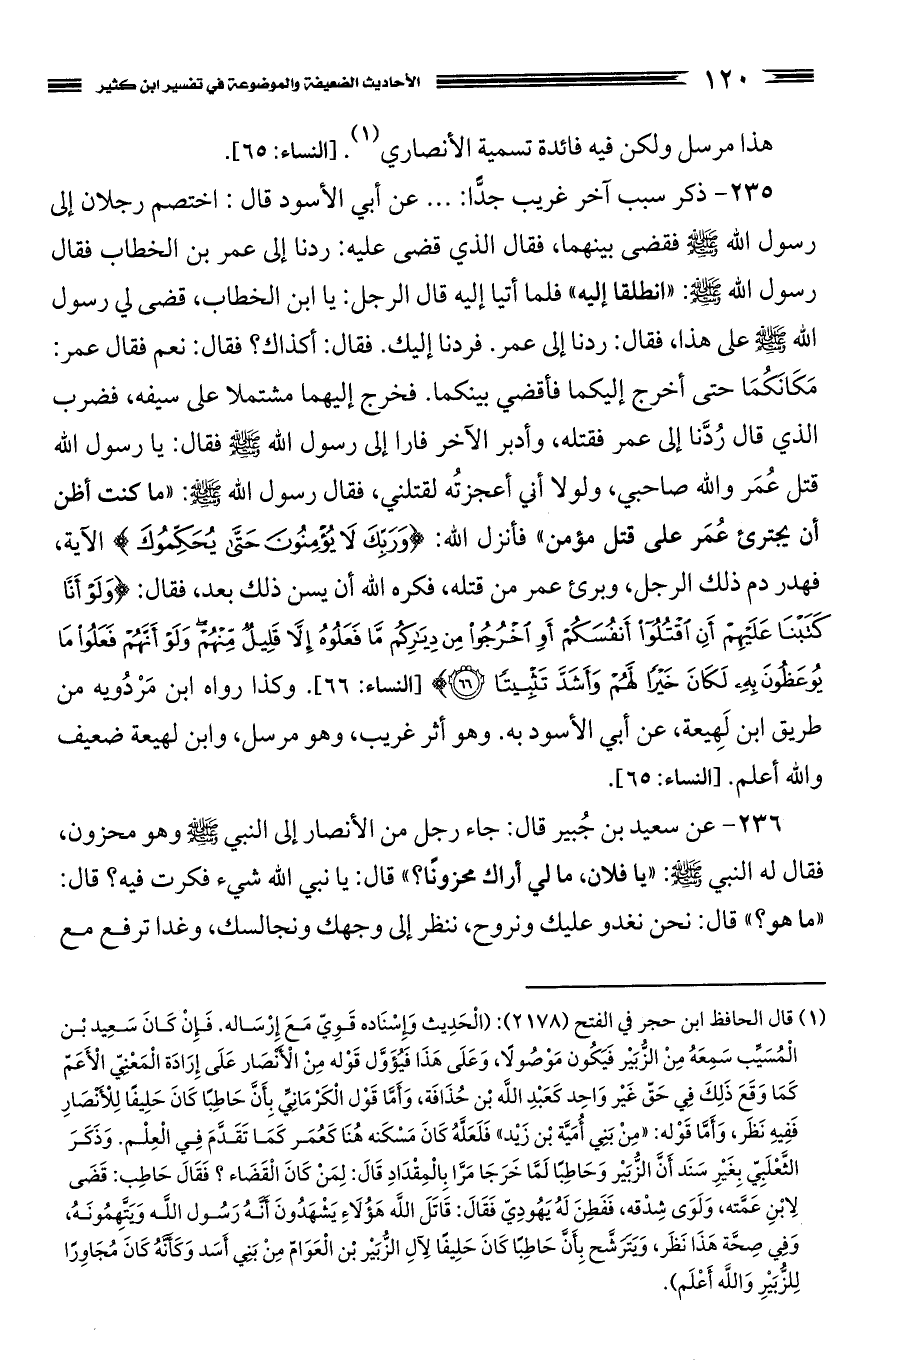 ١٢٠ الأحاديث الضعيفة والموضوعة في تفسير ابن كثير
هذا مرسل ولكن فيه فائدة تسمية الأنصاري(١). [النساء: ٦٥].
٢٣٥- ذكر سبب آخر غريب جدًّا: ... عن أبي الأسود قال : اختصم رجلان إلى
رسول الله ﷺ فقضى بينهما، فقال الذي قضى عليه: ردنا إلى عمر بن الخطاب فقال
رسول الله ﷺ: «انطلقا إليه» فلما أتيا إليه قال الرجل: يا ابن الخطاب، قضى لي رسول
الله ﷺ على هذا، فقال: ردنا إلى عمر. فردنا إليك. فقال: أكذاك؟ فقال: نعم فقال عمر:
مَكَانَكُمَا حتى أخرج إليكما فأقضي بينكما. فخرج إليهما مشتملا على سيفه، فضرب
الذي قال رُدَّنا إلى عمر فقتله، وأدبر الآخر فارا إلى رسول الله ﷺ فقال: يا رسول الله
قتل عُمَر والله صاحبي، ولولا أني أعجزتُه لقتلني، فقال رسول الله ﷺ: «ما كنت أظن
أن يجترئ عُمَر على قتل مؤمن» فأنزل الله: ﴿وَرَبِّكَ لَا يُؤْمِنُونَ حَتَّىٰ يُحَكِّمُوكَ ﴾ الآية،
فهدر دم ذلك الرجل، وبرئ عمر من قتله، فكره الله أن يسن ذلك بعد، فقال: ﴿وَلَوْ أَنَّا
كَتَبْنَا عَلَيْهِمْ أَنِ ٱقْتُلُوٓا۟ أَنفُسَكُمْ أَوِ ٱخْرُجُوا۟ مِن دِيَٰرِكُم مَّا فَعَلُوهُ إِلَّا قَلِيلٌ مِّنْهُمْ ۖ وَلَوْ أَنَّهُمْ فَعَلُوا۟ مَا
يُوعَظُونَ بِهِۦ لَكَانَ خَيْرًا لَّهُمْ وَأَشَدَّ تَثْبِيتًا ٦٦﴾ [النساء: ٦٦]. وكذا رواه ابن مَرْدُويه من
طريق ابن لَهِيعة، عن أبي الأسود به. وهو أثر غريب، وهو مرسل، وابن لهيعة ضعيف
والله أعلم. [النساء: ٦٥].
٢٣٦- عن سعيد بن جُبير قال: جاء رجل من الأنصار إلى النبي ﷺ وهو محزون،
فقال له النبي ﷺ: «يا فلان، ما لي أراك محزونًا؟» قال: يا نبي الله شيء فكرت فيه؟ قال:
«ما هو؟» قال: نحن نغدو عليك ونروح، ننظر إلى وجهك ونجالسك، وغدا ترفع مع
(١) قال الحافظ ابن حجر في الفتح (٢١٧٨): (الْحَدِيث وَإِسْنَاده قَوِيّ مَعَ إِرْسَاله. فَإِنْ كَانَ سَعِيد بْن
الْمُسَيِّب سَمِعَهُ مِنْ الزُّبَيْر فَيَكُون مَوْصُولًا، وَعَلَى هَذَا فَيُؤَوَّل قَوْله مِنْ الْأَنْصَار عَلَى إِرَادَة الْمَعْنِيّ الْأَعَمّ
كَمَا وَقَعَ ذَلِكَ فِي حَقّ غَيْر وَاحِد كَعَبْدِ اللَّه بْن حُذَافَة، وَأَمَّا قَوْل الْكَرْمَانِيِّ بِأَنَّ حَاطِبًا كَانَ حَلِيفًا لِلْأَنْصَارِ
فَفِيهِ نَظَر، وَأَمَّا قَوْله: «مِنْ بَنِي أُمَيَّة بْن زَيْد» فَلَعَلَّهُ كَانَ مَسْكَنه هُنَا كَعُمَر كَمَا تَقَدَّمَ فِي الْعِلْم. وَذَكَرَ
الثَّعْلَبِيّ بِغَيْرِ سَنَد أَنَّ الزُّبَيْر وَحَاطِبًا لَمَّا خَرَجَا مَرَّا بِالْمِقْدَادِ قَالَ: لِمَنْ كَانَ الْقَضَاء ؟ فَقَالَ حَاطِب: قَضَى
لِابْنِ عَمَّته، وَلَوَى شِدْقه، فَفَطِنَ لَهُ يَهُودِيّ فَقَالَ: قَاتَلَ اللَّه هَؤُلَاءِ يَشْهَدُونَ أَنَّهُ رَسُول اللَّه وَيَتَّهِمُونَهُ،
وَفِي صِحَّة هَذَا نَظَر، وَيَتَرَشَّح بِأَنَّ حَاطِبًا كَانَ حَلِيفًا لِآلِ الزُّبَيْر بْن الْعَوَامّ مِنْ بَنِي أَسَد وَكَأَنَّهُ كَانَ مُجَاوِرًا
لِلزُّبَيْرِ وَاللَّه أَعْلَم).